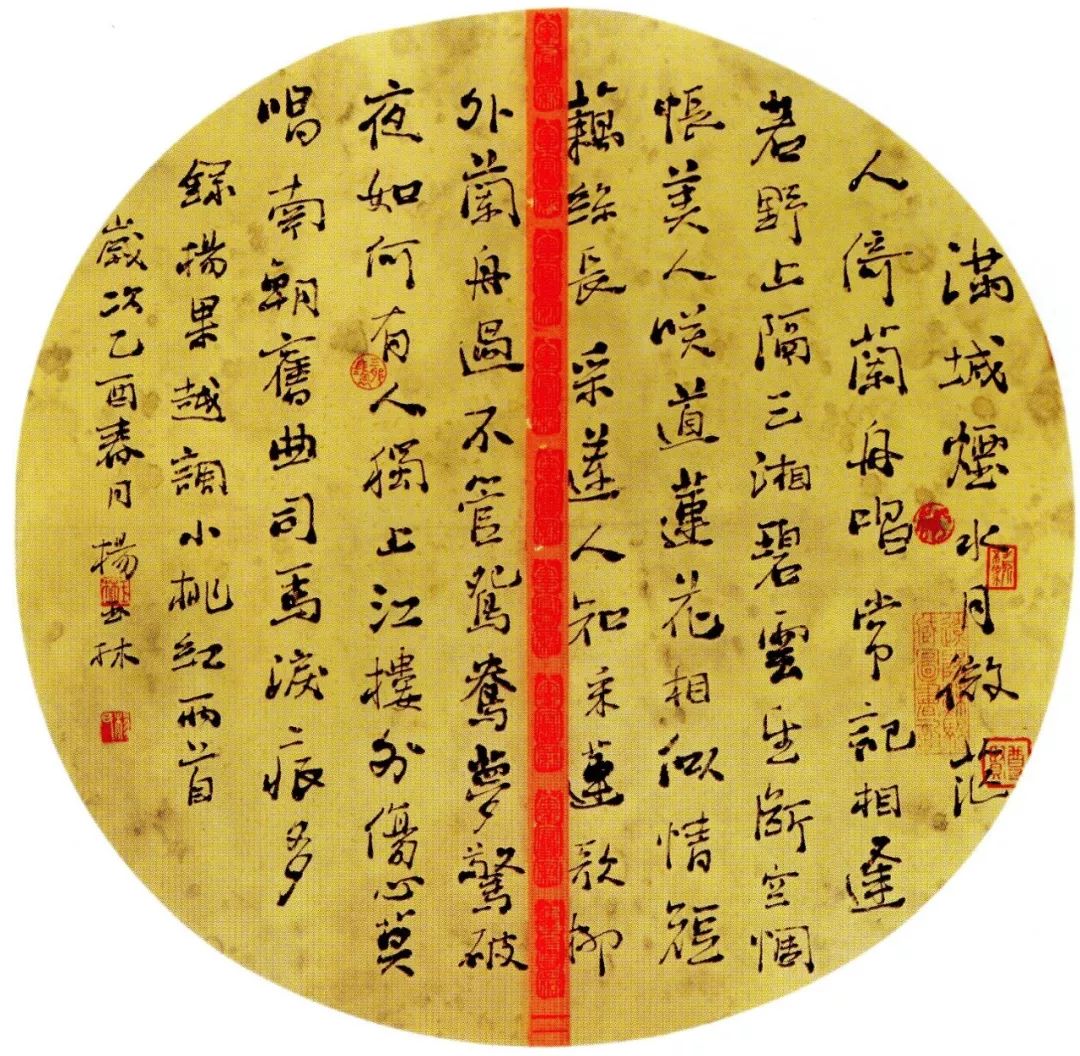 滿城煙水月微茫
人倚蘭舟唱常記相逢
若野上隔三湘碧雲望斷空惆
悵美人咲道蓮花相似情短
藕絲長采蓮人和采蓮歌柳
外蘭舟過不管鴛鴦夢驚破
夜如何有人獨上江樓卧傷心莫
唱南朝舊曲司馬淚痕多
錄楊果越調小桃紅兩首
歲次乙酉春月楊林